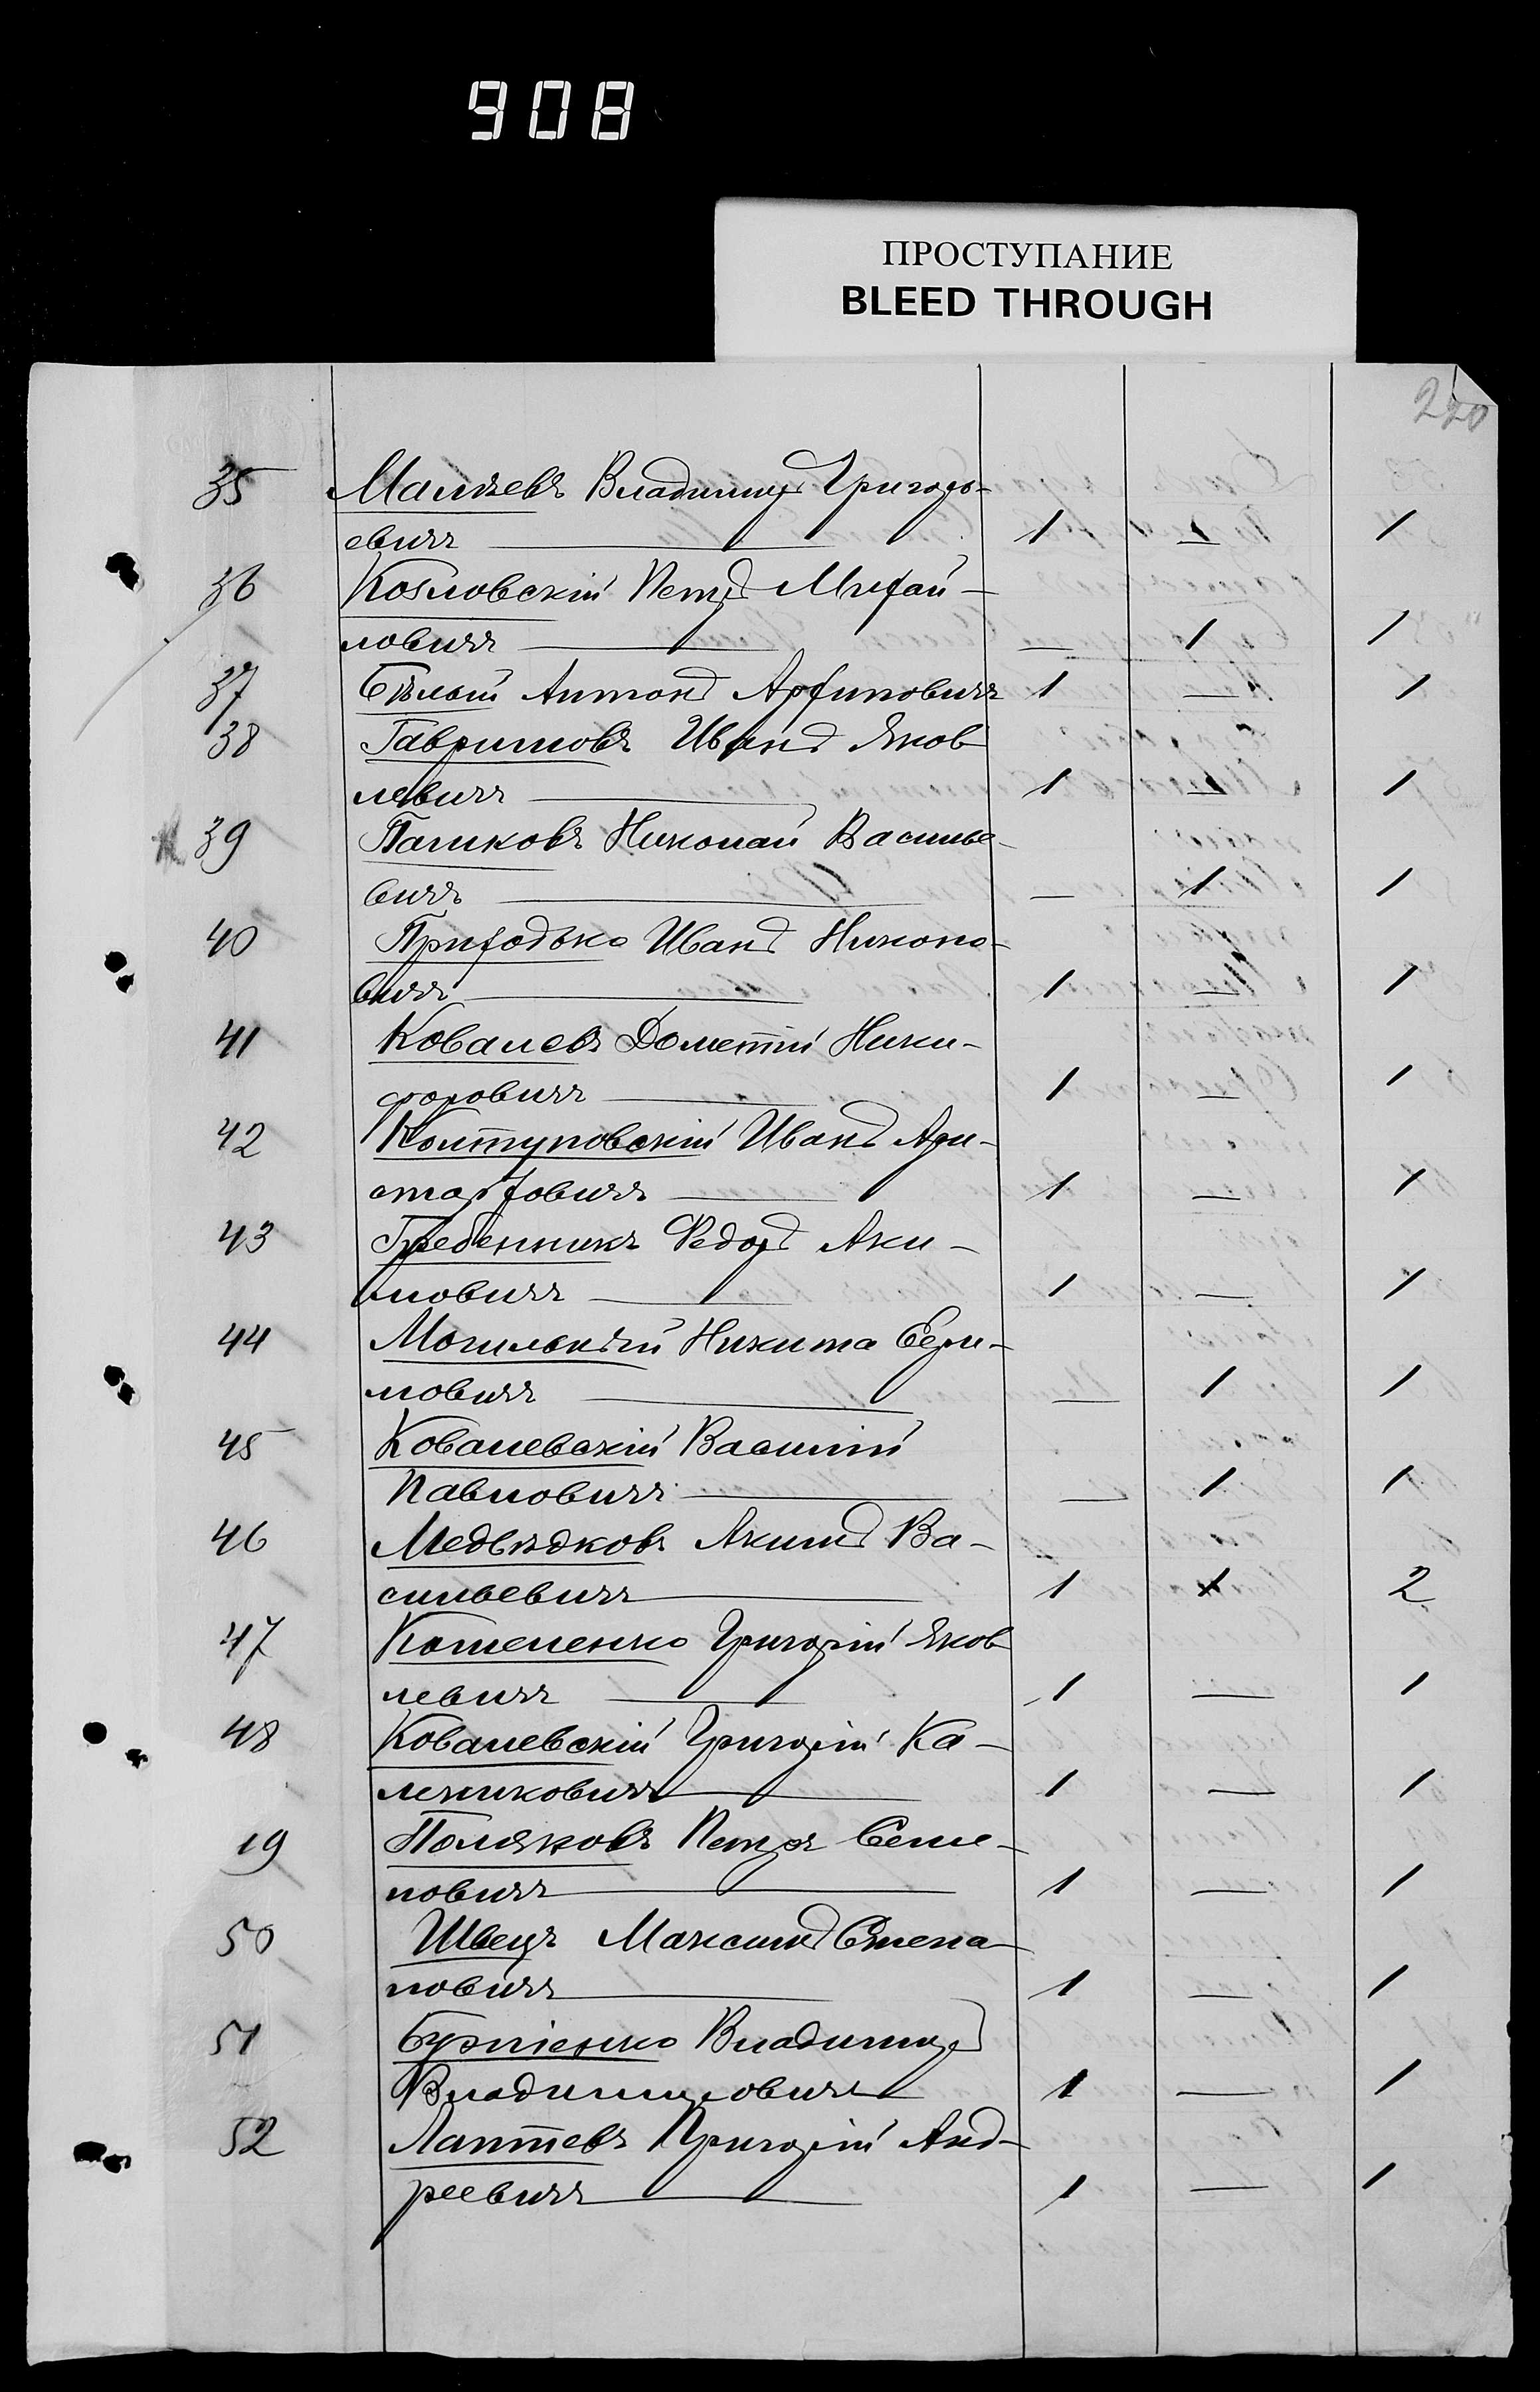 908
ПРОСТУПАНИЕ
BLEED THROUGH
220
35 Малѣевъ Владимиръ Григорь-
евичъ — 1 — 1
36 Козловскій Петръ Михай-
ловичъ — — 1 1
37 Бѣлый Антонъ Архиповичъ 1 — 1
38 Гавриловъ Иванъ Яков
левичъ — 1 — 1
39 Пашковъ Николай Василье-
вичъ — — 1 1
40 Приходько Иванъ Никоно-
вичъ — 1 — 1
41 Ковалевъ Дометій Ники-
форовичъ — 1 — 1
42 Колтуновскій Иванъ Ари-
старховичъ — 1 — 1
43 Гребенникъ Федоръ Аки-
мовичъ — 1 — 1
44 Могильный Никита
мовичъ — — 1 1
45 Ковалевскій Василій
Павловичъ — — 1 1
46 Медвѣдковъ Акимъ Ва-
сильевичъ — 1 1 2
47 Котеленко Григорій Яков
левичъ — 1 — 1
48 Ковалевскій Григорій Ка-
лениковичъ — 1 — 1
19 Поляковъ Петръ Семе-
новичъ — 1 — 1
50 Швецъ Максимъ Степа-
новичъ — 1 — 1
51 Владимиръ
Владимировичъ 1 — 1
52 Лаптевъ Григорій Анд-
реевичъ — 1 — 1